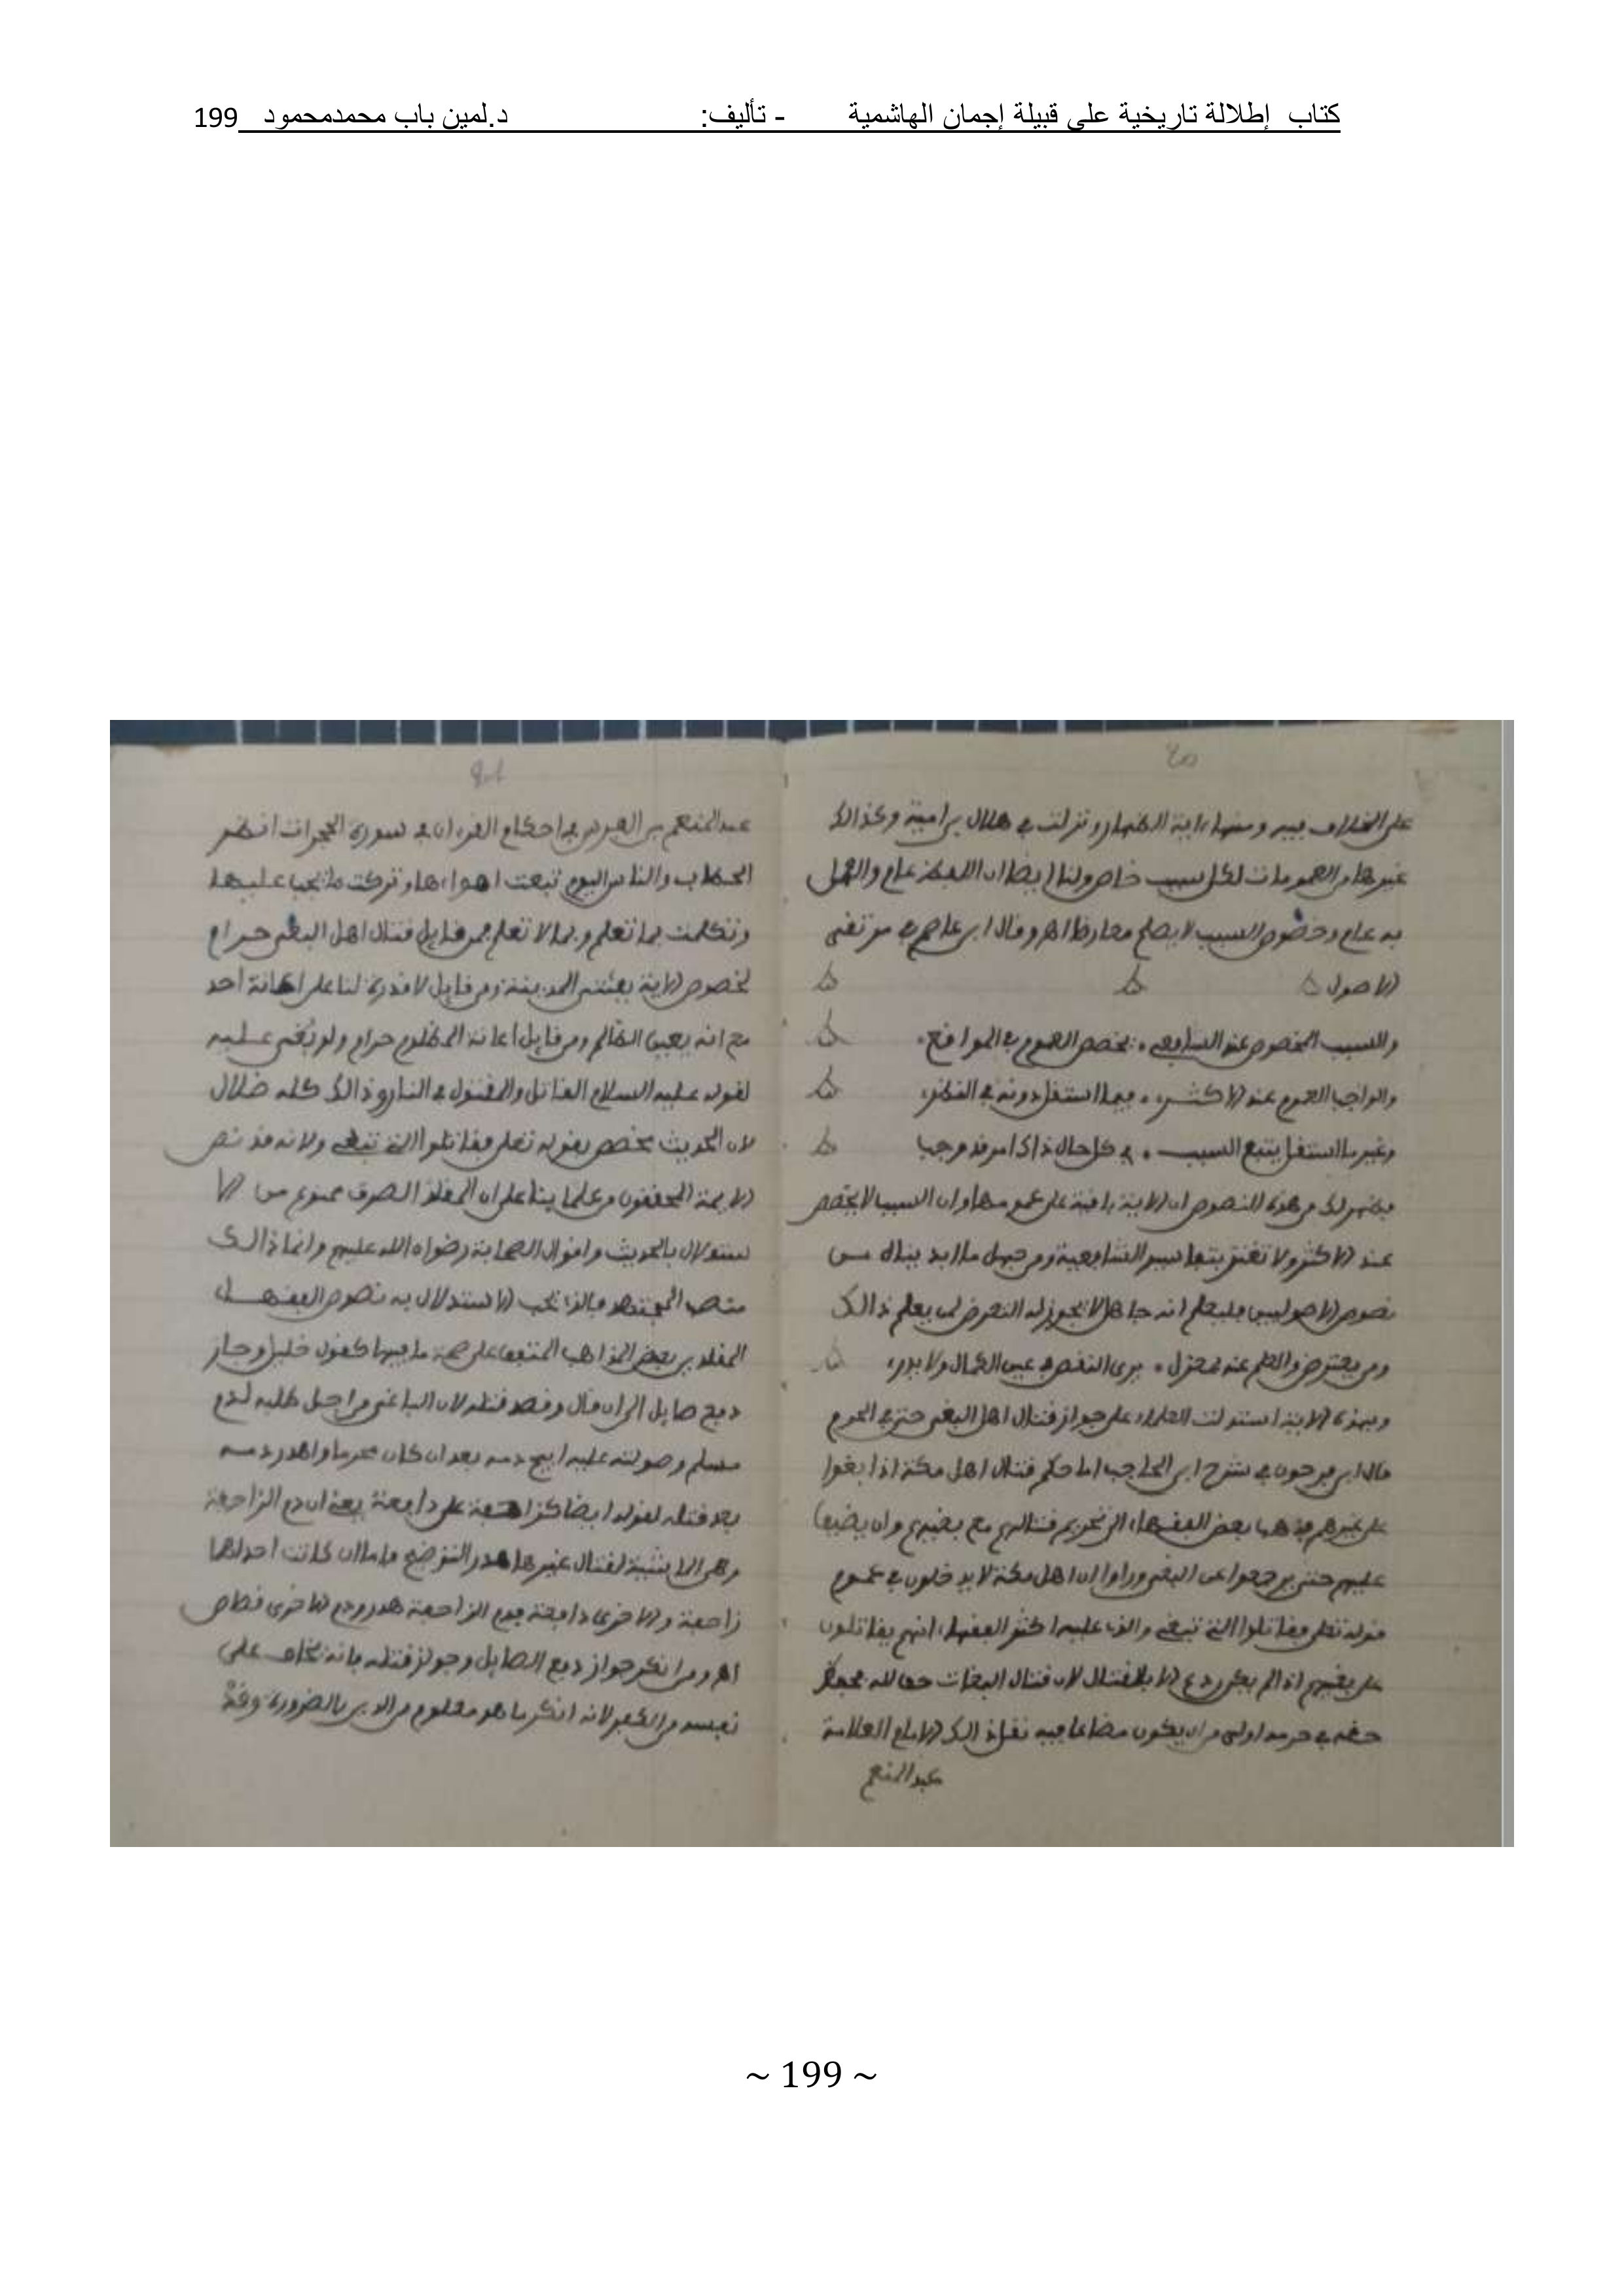 كتاب إطلالة تاريخية على قبيلة إجمان الهاشمية - تأليف: د.لمين باب محمدمحمود 199
20
على الخلاف فيه ومنها ءاية الظهار ونزلت في هلال بن امية وكذالك
غيرها من العمومات لكل سبب خاص ولنا ايضا ان اللفظ عام والعمل
به عام وخصوص السبب لا يصلح معارضا اهـ وقال ابن عاصم في مرتقى
الاصول
والسبب المخصوص عند الشافعي يخصص العموم في المواقع
والواجب العموم عند الاكثر فيما استقل دونه في النظر
وغير ما استقل يتبع السبب في كل حال ذاك امر قد وجب
فظهر لك من هذه النصوص ان الاية باقية على عمومها وان السبب لا يخصص
عند الاكثر ولا تغتر بتفاسير الشافعية ومن جهل ما اريد بذاك من
نصوص الاصوليين فليعلم انه جاهل لا يجوز له التعرض لمن يعلم ذالك
ومن يعترض والعلم عنه بمعزل يرى النقص في عين الكمال ولا يدر
وبهذه الاية استدلت العلماء على جواز قتال اهل البغي حتى في الحرم
قال ابن فرحون في شرح ابن الحاجب اما حكم قتال اهل مكة اذا بغوا
على غيرهم فذهب بعض الفقهاء الى تحريم قتالهم مع بغيهم وان يضيق
عليهم حتى يرجعوا عن البغي وراوا ان اهل مكة لا يدخلون في عموم
قوله تعلى فقاتلوا التي تبغي والذي عليه اكثر الفقهاء انهم يقاتلون
على بغيهم اذا لم يكن ردع الا بالقتال لان قتال البغات حق الله فحفظ
حقه في حرمه اولى من ان يكون مضاعا فيه نقل ذالك الامام العلامة
عبد المنعم
21
عبد المنعم بن الفرس في احكام القرءان في سورة الحجرات انظر
الحطاب والناس اليوم تبعت اهواءها وتركت ما يجب عليها
وتكلمت بما تعلم وبما لا تعلم فمن قايل قتال اهل البغي حرام
لخصوص الاية بفئتي المدينة ومن قايل لا قدرة لنا على اعانة احد
مع انه يعين الظالم ومن قايل اعانة المظلوم حرام ولو بُغي عليه
لقوله عليه السلام القاتل والمقتول في النار وذالك كله ضلال
لان الحديث مخصص بقوله تعلى فقاتلوا التي تبغي ولانه قد نص
الايمة المحققون وعلماينا على ان المقلد الصرف ممنوع من الا
ستدلال بالحديث واقوال الصحابة رضوان الله عليهم وانما ذالك
منصب المجتهد فالذي يجب الاستدلال به نصوص الفقهاء
المقلدين بعض المذاهب المتفق على صحة ما فيها كقول خليل وجاز
دفع صايل الى ان قال وقصد قتله لان الباغي من اجل طلبه لدم
مسلم وصولته عليه ابيح دمه بعد ان كان محرما واهدر دمه
بعد قتله لقوله ايضا كزاحفة على دافعة يعني ان دم الزاحفة
وهي الماشية لقتال غيرها هدر التوضيح واما ان كانت احداهما
زاحفة والاخرى دافعة فدم الزاحفة هدر ودم الاخرى قصاص
اهـ ومن انكر جواز دفع الصايل وجواز قتله فانه يخاف على
نفسه من الكفر لانه انكر ما هو معلوم من الدين بالضرورة وقد
~ 199 ~